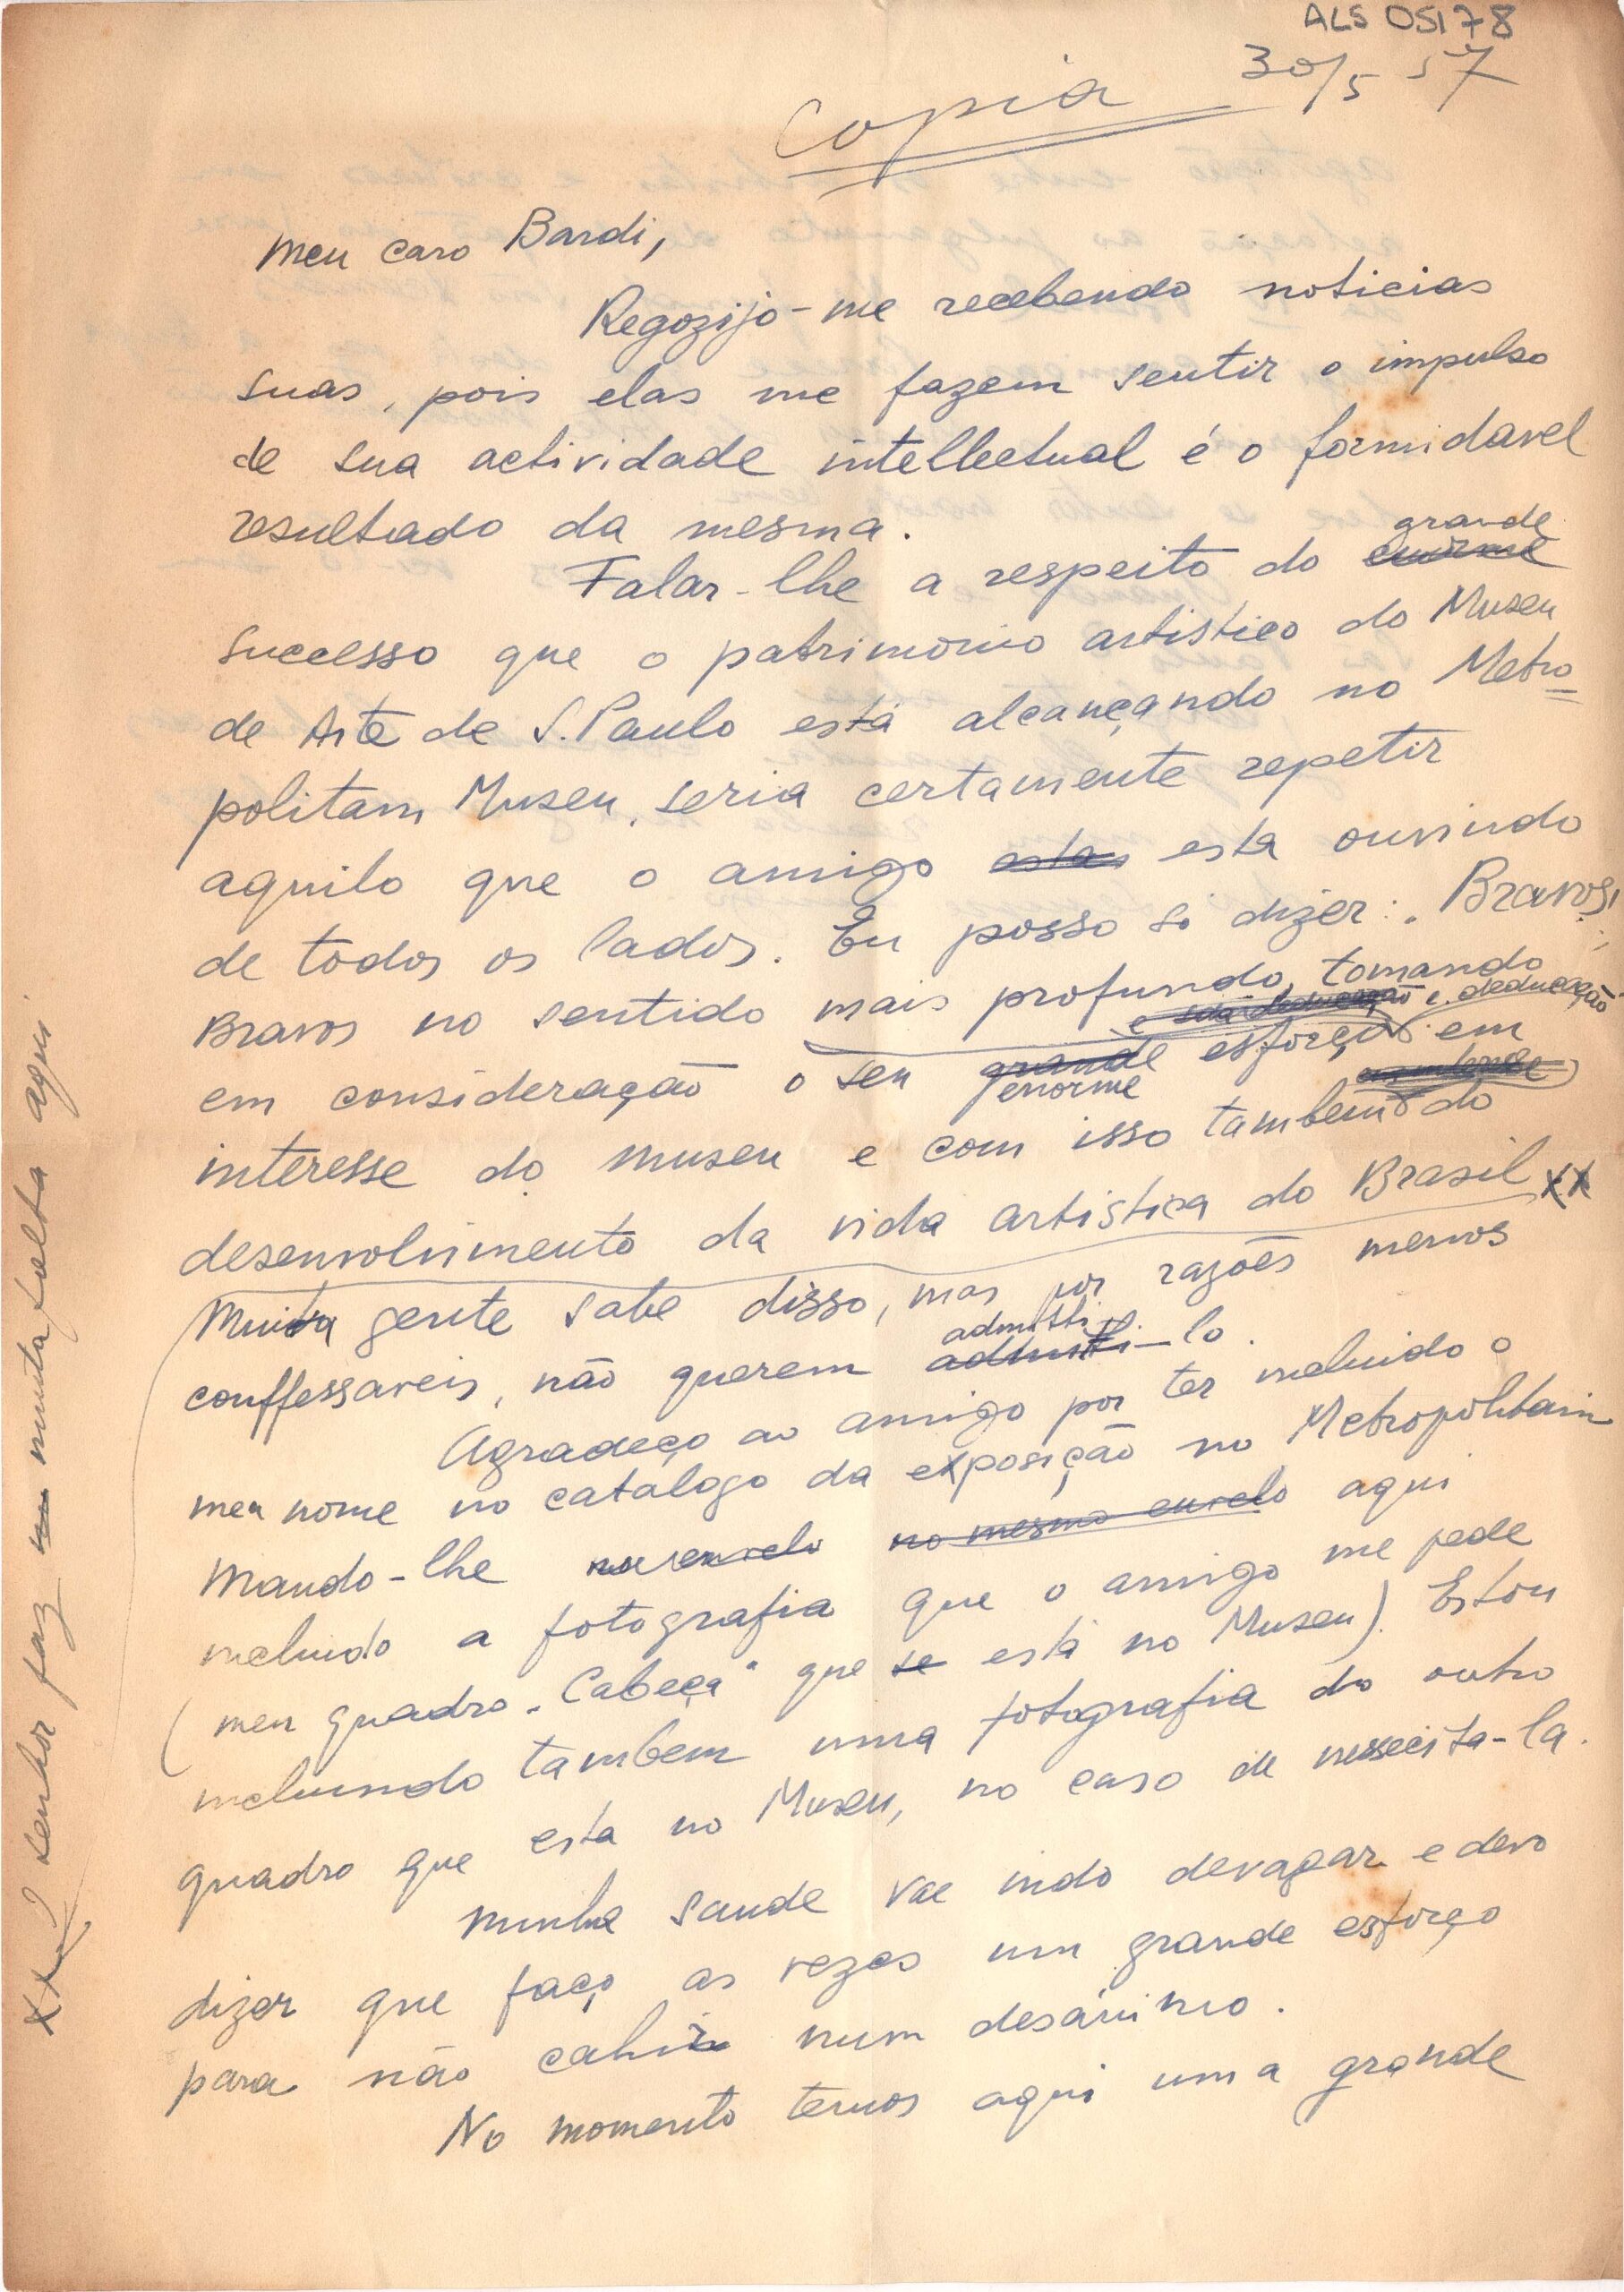 ALS 05178
30/5 57
Copia
Meu caro Bardi,
Regozijo-me recebendo noticias
suas, pois elas me fazem sentir o impulso
de sua actividade intellectual é o formidavel
resultado da mesma.
grande
Falar-lhe a respeito do enorme
successo que o patrimonio artistico do Museu
de Arte de S. Paulo está alcançando no Metro=
politam Museu, seria certamente repetir
aquilo que o amigo estas esta ouvindo
de todos os lados. Eu posso só dizer: „Bravos,
Bravos no sentido mais profundo, tomando
e sua deducação e deducação
em consideração o seu grande esforço em
enorme
interesse do museu e com isso tambem do
desenvolvimento da vida artistica do Brasil xx
Muita gente sabe disso, mas por razões menos
admitti
conffessaveis, não querem admitti-lo.
Agradeço ao amigo por ter incluido o
meu nome no catalogo da exposição no Metropolitain
Mando-lhe no mesmo envelo aqui
incluido a fotografia que o amigo me pede
(meu quadro „Cabeça" que se está no Museu). Estou
incluindo tambem uma fotografia do outro
quadro que esta no Museu, no caso de nessecita-la.
Minha saude vae indo devagar e devo
dizer que faço as vezes um grande esforço
para não cahir num desánimo.
No momento temos aqui uma grande
xx O senhor faz muita falta aqui